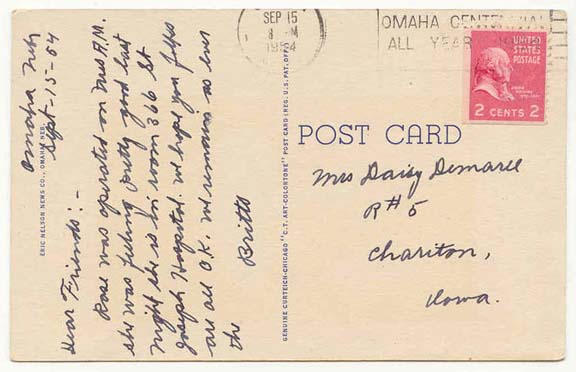 Omaha Neb
Sept-15-54
Dear Friends:-
Rose was operated on Tues A.M.
she was feeling pretty good last
night she is in room 366 St
Joseph Hospital. we hope you folks
are all O.K. we remain as ever
the Britts
ERIC NELSON NEWS CO., OMAHA, NEB.
GENUINE CURTEICH-CHICAGO "C.T. ART-COLORTONE" POST CARD (REG. U.S. PAT. OFF.)
SEP 15
8 M
1954
OMAHA CENTENNIAL
ALL YEAR
UNITED
STATES
POSTAGE
2 CENTS 2
POST CARD
Mrs Daisy Demaree
R#5
Chariton,
Iowa.